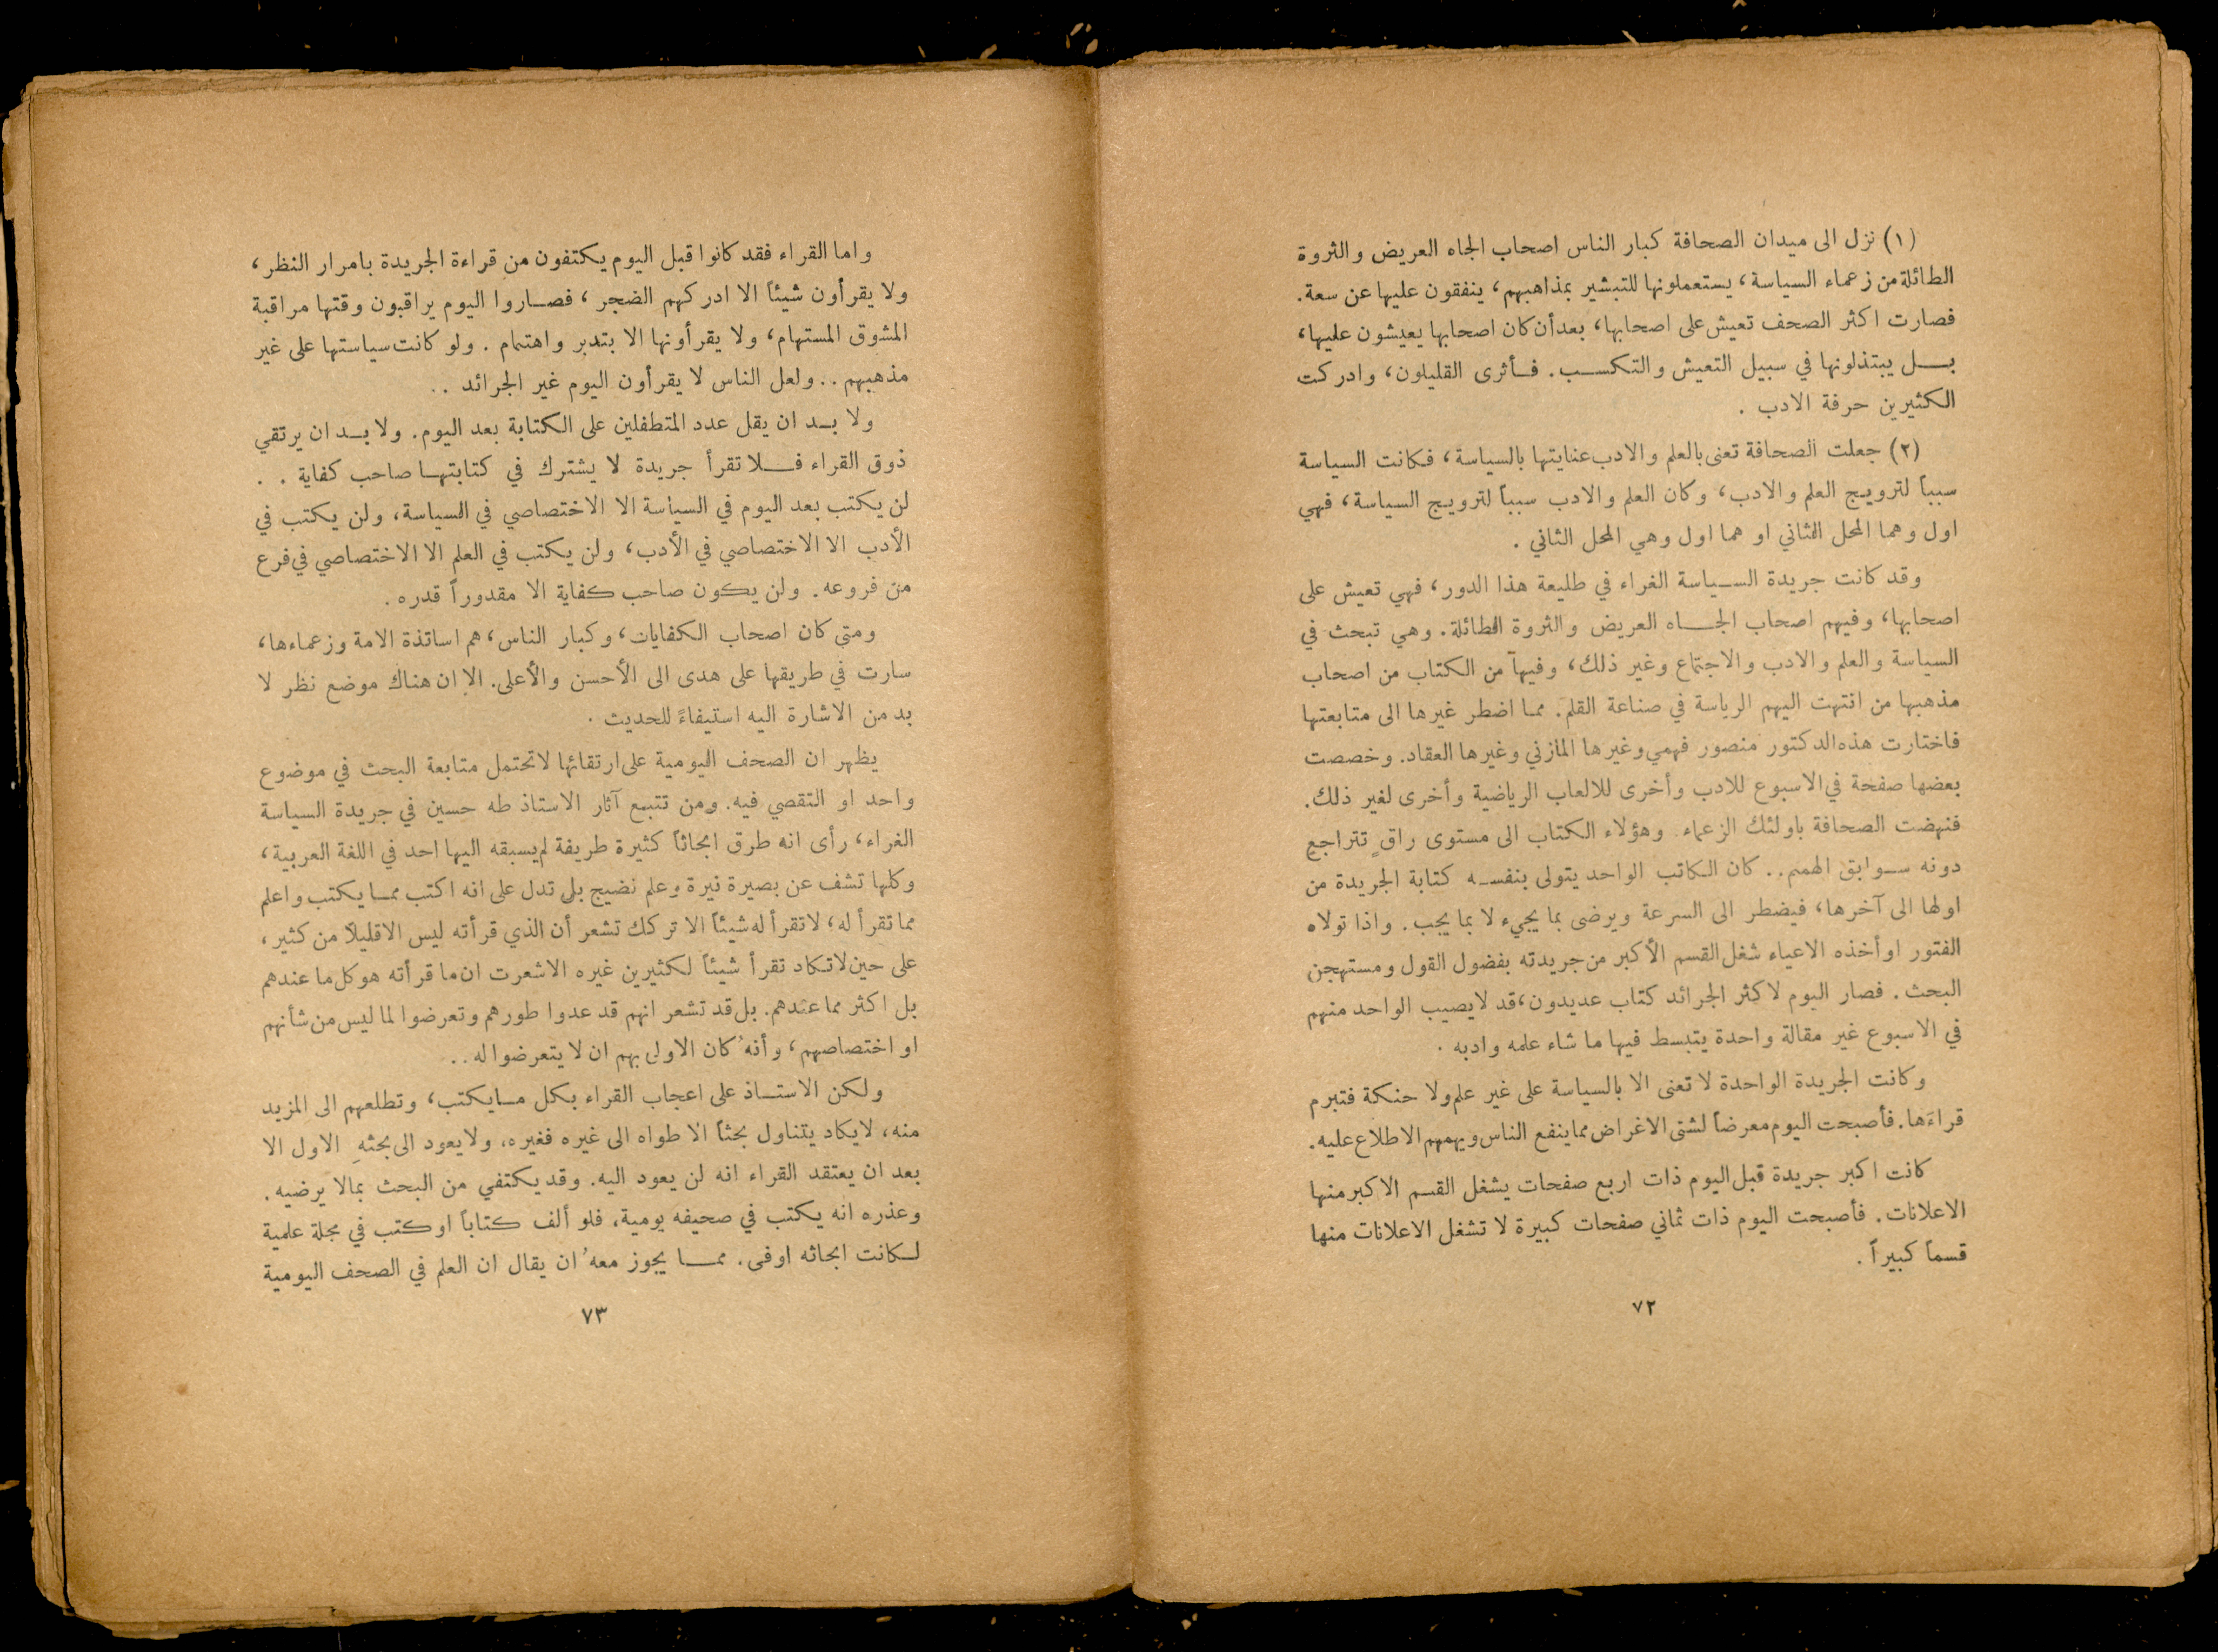 (١) نزل الى ميدان الصحافة كبار الناس اصحاب الجاه العريض والثروة
الطائلة من زعماء السياسة، يستعملونها للتبشير بمذاهبهم، ينفقون عليها عن سعة.
فصارت اكثر الصحف تعيش على اصحابها، بعد أن كان اصحابها يعيشون عليها،
بـل يبتذلونها في سبيل التعيش والتكسـب. فـأثرى القليلون، وادركت
الكثيرين حرفة الادب .
(٢) جعلت الصحافة تعنى بالعلم والادب عنايتها بالسياسة، فكانت السياسة
سبباً لترويج العلم والادب، وكان العلم والادب سبباً لترويج السياسة، فهي
اول وهما المحل الثاني او هما اول وهي المحل الثاني .
وقد كانت جريدة السـياسة الغراء في طليعة هذا الدور، فهي تعيش على
اصحابها، وفيهم اصحاب الجـاه العريض والثروة الطائلة. وهي تبحث في
السياسة والعلم والادب والاجتماع وغير ذلك، وفيها من الكتاب من اصحاب
مذهبها من انتهت اليهم الرياسة في صناعة القلم. مما اضطر غيرها الى متابعتها
فاختارت هذه الدكتور منصور فهمي وغيرها المازني وغيرها العقاد. وخصصت
بعضها صفحة في الاسبوع للادب وأخرى للالعاب الرياضية وأخرى لغير ذلك.
فنهضت الصحافة باولئك الزعماء وهؤلاء الكتاب الى مستوى راقٍ تتراجع
دونه سـوابق الهمم.. كان الكاتب الواحد يتولى بنفسـه كتابة الجريدة من
اولها الى آخرها، فيضطر الى السرعة ويرضى بما يجيء لا بما يجب. واذا تولاه
الفتور او أخذه الاعياء شغل القسم الأكبر من جريدته بفضول القول ومستهجن
البحث. فصار اليوم لاكثر الجرائد كتاب عديدون، قد لا يصيب الواحد منهم
في الاسبوع غير مقالة واحدة يتبسط فيها ما شاء علمه وادبه .
وكانت الجريدة الواحدة لا تعنى الا بالسياسة على غير علم ولا حنكة فتبرم
قراءَها. فأصبحت اليوم معرضاً لشتى الاغراض مما ينفع الناس ويهمهم الاطلاع عليه.
كانت اكبر جريدة قبل اليوم ذات اربع صفحات يشغل القسم الاكبر منها
الاعلانات. فأصبحت اليوم ذات ثماني صفحات كبيرة لا تشغل الاعلانات منها
قسماً كبيراً .
٧٢
واما القراء فقد كانوا قبل اليوم يكتفون من قراءة الجريدة بامرار النظر،
ولا يقرأون شيئاً الا ادركهم الضجر، فصـاروا اليوم يراقبون وقتها مراقبة
المشوق المستهام، ولا يقرأونها الا بتدبر واهتمام . ولو كانت سياستها على غير
مذهبهم .. ولعل الناس لا يقرأون اليوم غير الجرائد ..
ولا بـد ان يقل عدد المتطفلين على الكتابة بعد اليوم. ولا بـد ان يرتقي
ذوق القراء فـلا تقرأ جريدة لا يشترك في كتابتهـا صاحب كفاية . .
لن يكتب بعد اليوم في السياسة الا الاختصاصي في السياسة، ولن يكتب في
الأدب الا الاختصاصي في الأدب، ولن يكتب في العلم الا الاختصاصي في فرع
من فروعه. ولن يكون صاحب كفاية الا مقدوراً قدره .
ومتى كان اصحاب الكفايات، وكبار الناس، هم اساتذة الامة وزعماءها،
سارت في طريقها على هدى الى الأحسن والأعلى. الا ان هناك موضع نظر لا
بد من الاشارة اليه استيفاءً للحديث .
يظهر ان الصحف اليومية على ارتقائها لا تحتمل متابعة البحث في موضوع
واحد او التقصي فيه. ومن تتبع آثار الاستاذ طه حسين في جريدة السياسة
الغراء، رأى انه طرق ابحاثاً كثيرة طريفة لم يسبقه اليها احد في اللغة العربية،
وكلها تشف عن بصيرة نيرة وعلم نضيج بل تدل على انه اكتب ممـا يكتب واعلم
مما تقرأ له، لا تقرأ له شيئاً الا تركك تشعر أن الذي قرأته ليس الا قليلاً من كثير،
على حين لا تكاد تقرأ شيئاً لكثيرين غيره الا شعرت ان ما قرأته هو كل ما عندهم
بل اكثر مما عندهم. بل قد تشعر انهم قد عدوا طورهم وتعرضوا لما ليس من شأنهم
او اختصاصهم، وأنهُ كان الاولى بهم ان لا يتعرضوا له ..
ولكن الاستـاذ على اعجاب القراء بكل مـا يكتب، وتطلعهم الى المزيد
منه، لا يكاد يتناول بحثاً الا طواه الى غيره فغيره، ولا يعود الى بحثهِ الاول الا
بعد ان يعتقد القراء انه لن يعود اليه. وقد يكتفي من البحث بما لا يرضيه.
وعذره انه يكتب في صحيفه يومية، فلو ألف كتاباً او كتب في مجلة علمية
لـكانت ابحاثه اوفى. ممـا يجوز معهُ ان يقال ان العلم في الصحف اليومية
٧٣